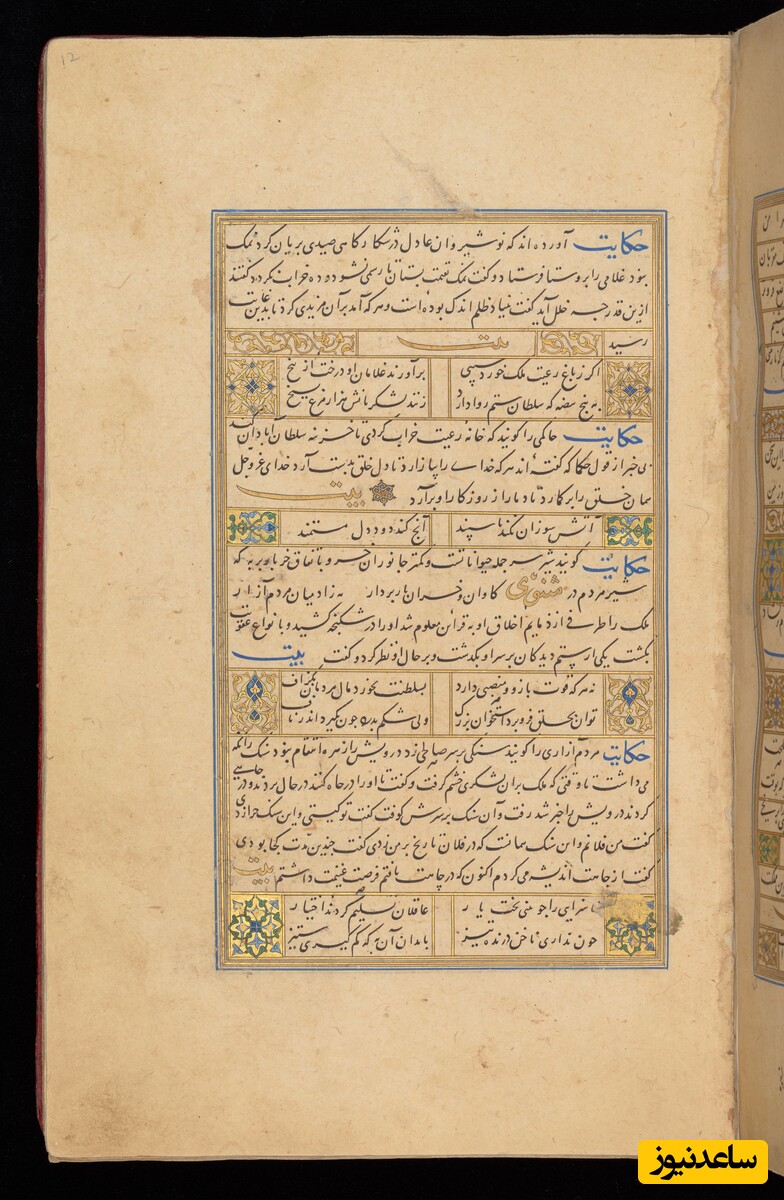 12
حکایت آورده اند که نوشیروان عادل در شکار کاهی صیدی بریان کردند نمک
نبود غلامی را بروستا فرستاد و کفت نمک بقیمت بستان تا رسمی نشود و ده خراب نکردد کفتند
ازین قدر چه خلل آید کفت بنیاد ظلم اندک بوده است و هر که آمد بر آن مزیدی کرد تا بدین غایت
رسید
بیت
اکر ز باغ رعیت ملک خورد سیبی برآورند غلامان او درخت از بیخ
به پنج بیضه که سلطان ستم روا دارد زنند لشکریانش هزار مرغ بسیخ
حکایت حاکمی را کویند که خانه رعیت خراب کردی تا خزینه سلطان آبادان کند
بی خبر از قول حکما که کفته اند هر که خدای را بیازارد تا دل خلق بدست آرد خدای عز و جل
همان خلق را بر کمارد تا دمار از روزکار او برآرد بیت
آتش سوزان نکند با سپند آنچ کند دود دل مستمند
حکایت کویند شیر سر جمله حیواناتست و کمتر جانوران خر و باتفاق خر باربر به که
شیر مردم در مثنوی کاوان و خران باربردار به ز آدمیان مردم آزار
ملک را طرفی از ذمایم اخلاق او بقراین معلوم شد او را در شکنجه کشید و بانواع عقوبت
بکشت یکی از ستم دیدکان بر سر او بکذشت و بر حال او نظر کرد و کفت بیت
نه هر که قوت بازو و منصبی دارد بسلطنت بخورد مال مردمان بکزاف
توان بحلق فرو برد استخوان بزرک ولی شکم بدرد چون بکیرد اندر ناف
حکایت مردم آزاری را کویند سنکی بر سر صالحی زد درویش را مره انتقام نبود سنک را نکه
می داشت تا وقتی که ملک بر ان لشکری خشم کرفت و کفت تا او را در چاه کنند در حال بردند و در چاهی
کردند درویش را خبر شد رفت و آن سنک بر سرش کوفت کفت تو کیستی و این سنک چرا زدی
کفت من فلانم و این سنک همانست که در فلان تاریخ بر من زدی کفت چندین مدت کجا بودی
کفت از جاهت اندیشه می کردم اکنون که در چاهت یافتم فرصت غنیمت داشتم بیت
ناسزایی را چو بینی بخت یار عاقلان تسلیم کردند اختیار
چون نداری ناخن درنده تیز با بدان آن به که کم کیری ستیز
ساعدنیوز